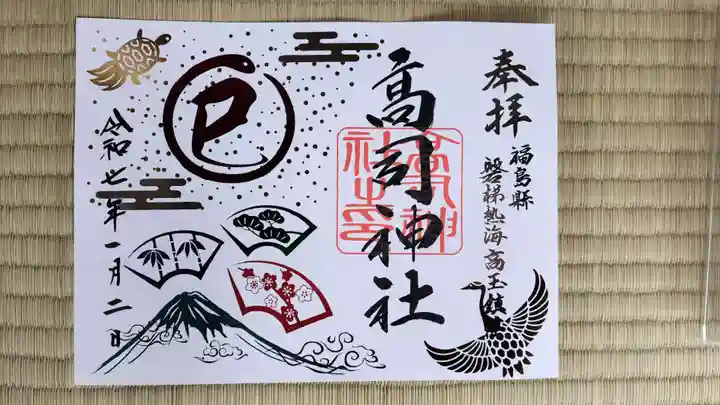 奉拝
福島縣
磐梯熱海高玉鎮座
高司神社
高司神社之印
巳
令和七年一月二日